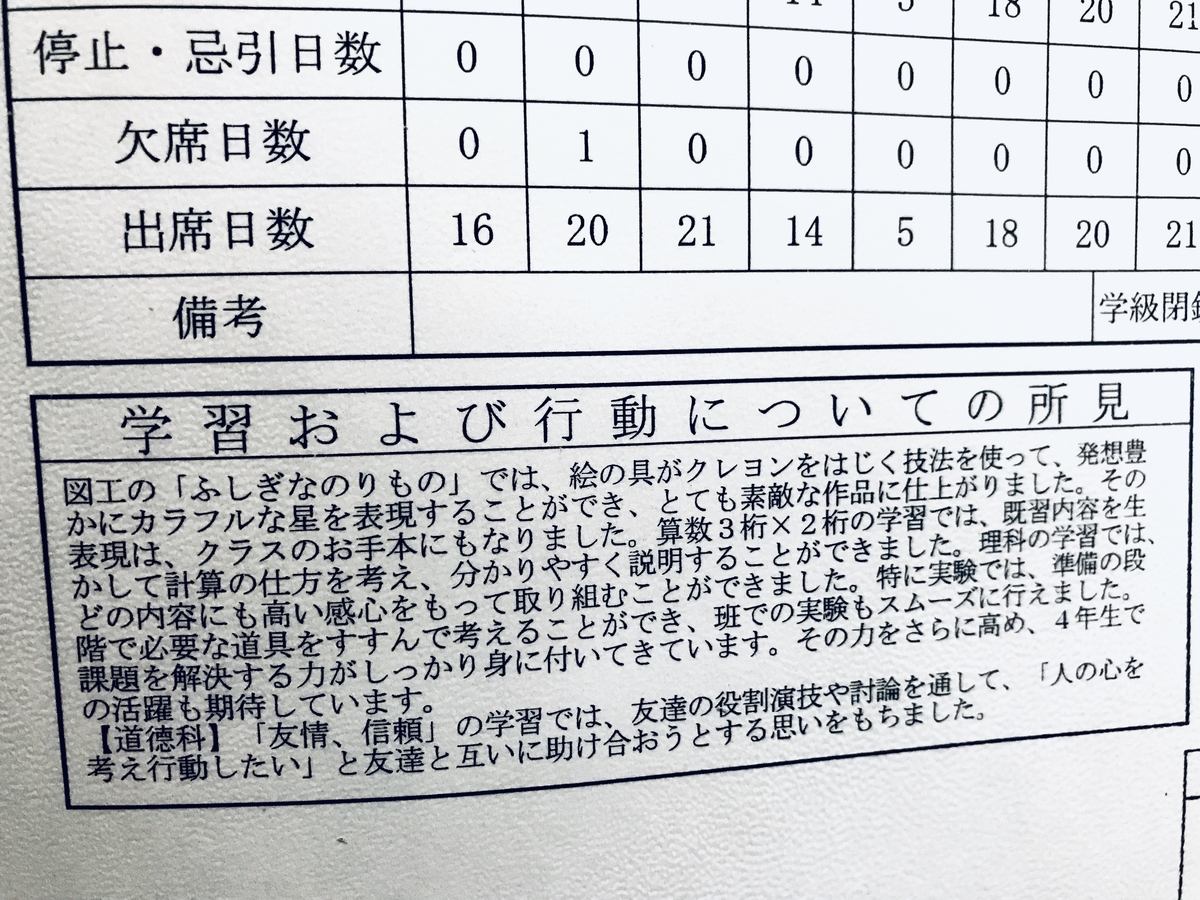 14 5 18 20 21
停止・忌引日数 0 0 0 0 0 0 0 0
欠席日数 0 1 0 0 0 0 0 0
出席日数 16 20 21 14 5 18 20 21
備考 学級閉
学習および行動についての所見
図工の「ふしぎなのりもの」では、絵の具がクレヨンをはじく技法を使って、発想豊
かにカラフルな星を表現することができ、とても素敵な作品に仕上がりました。その
表現は、クラスのお手本にもなりました。算数3桁×2桁の学習では、既習内容を生
かして計算の仕方を考え、分かりやすく説明することができました。理科の学習では、
どの内容にも高い感心をもって取り組むことができました。特に実験では、準備の段
階で必要な道具をすすんで考えることができ、班での実験もスムーズに行えました。
課題を解決する力がしっかり身に付いてきています。その力をさらに高め、4年生で
の活躍も期待しています。
【道徳科】「友情、信頼」の学習では、友達の役割演技や討論を通して、「人の心を
考え行動したい」と友達と互いに助け合おうとする思いをもちました。